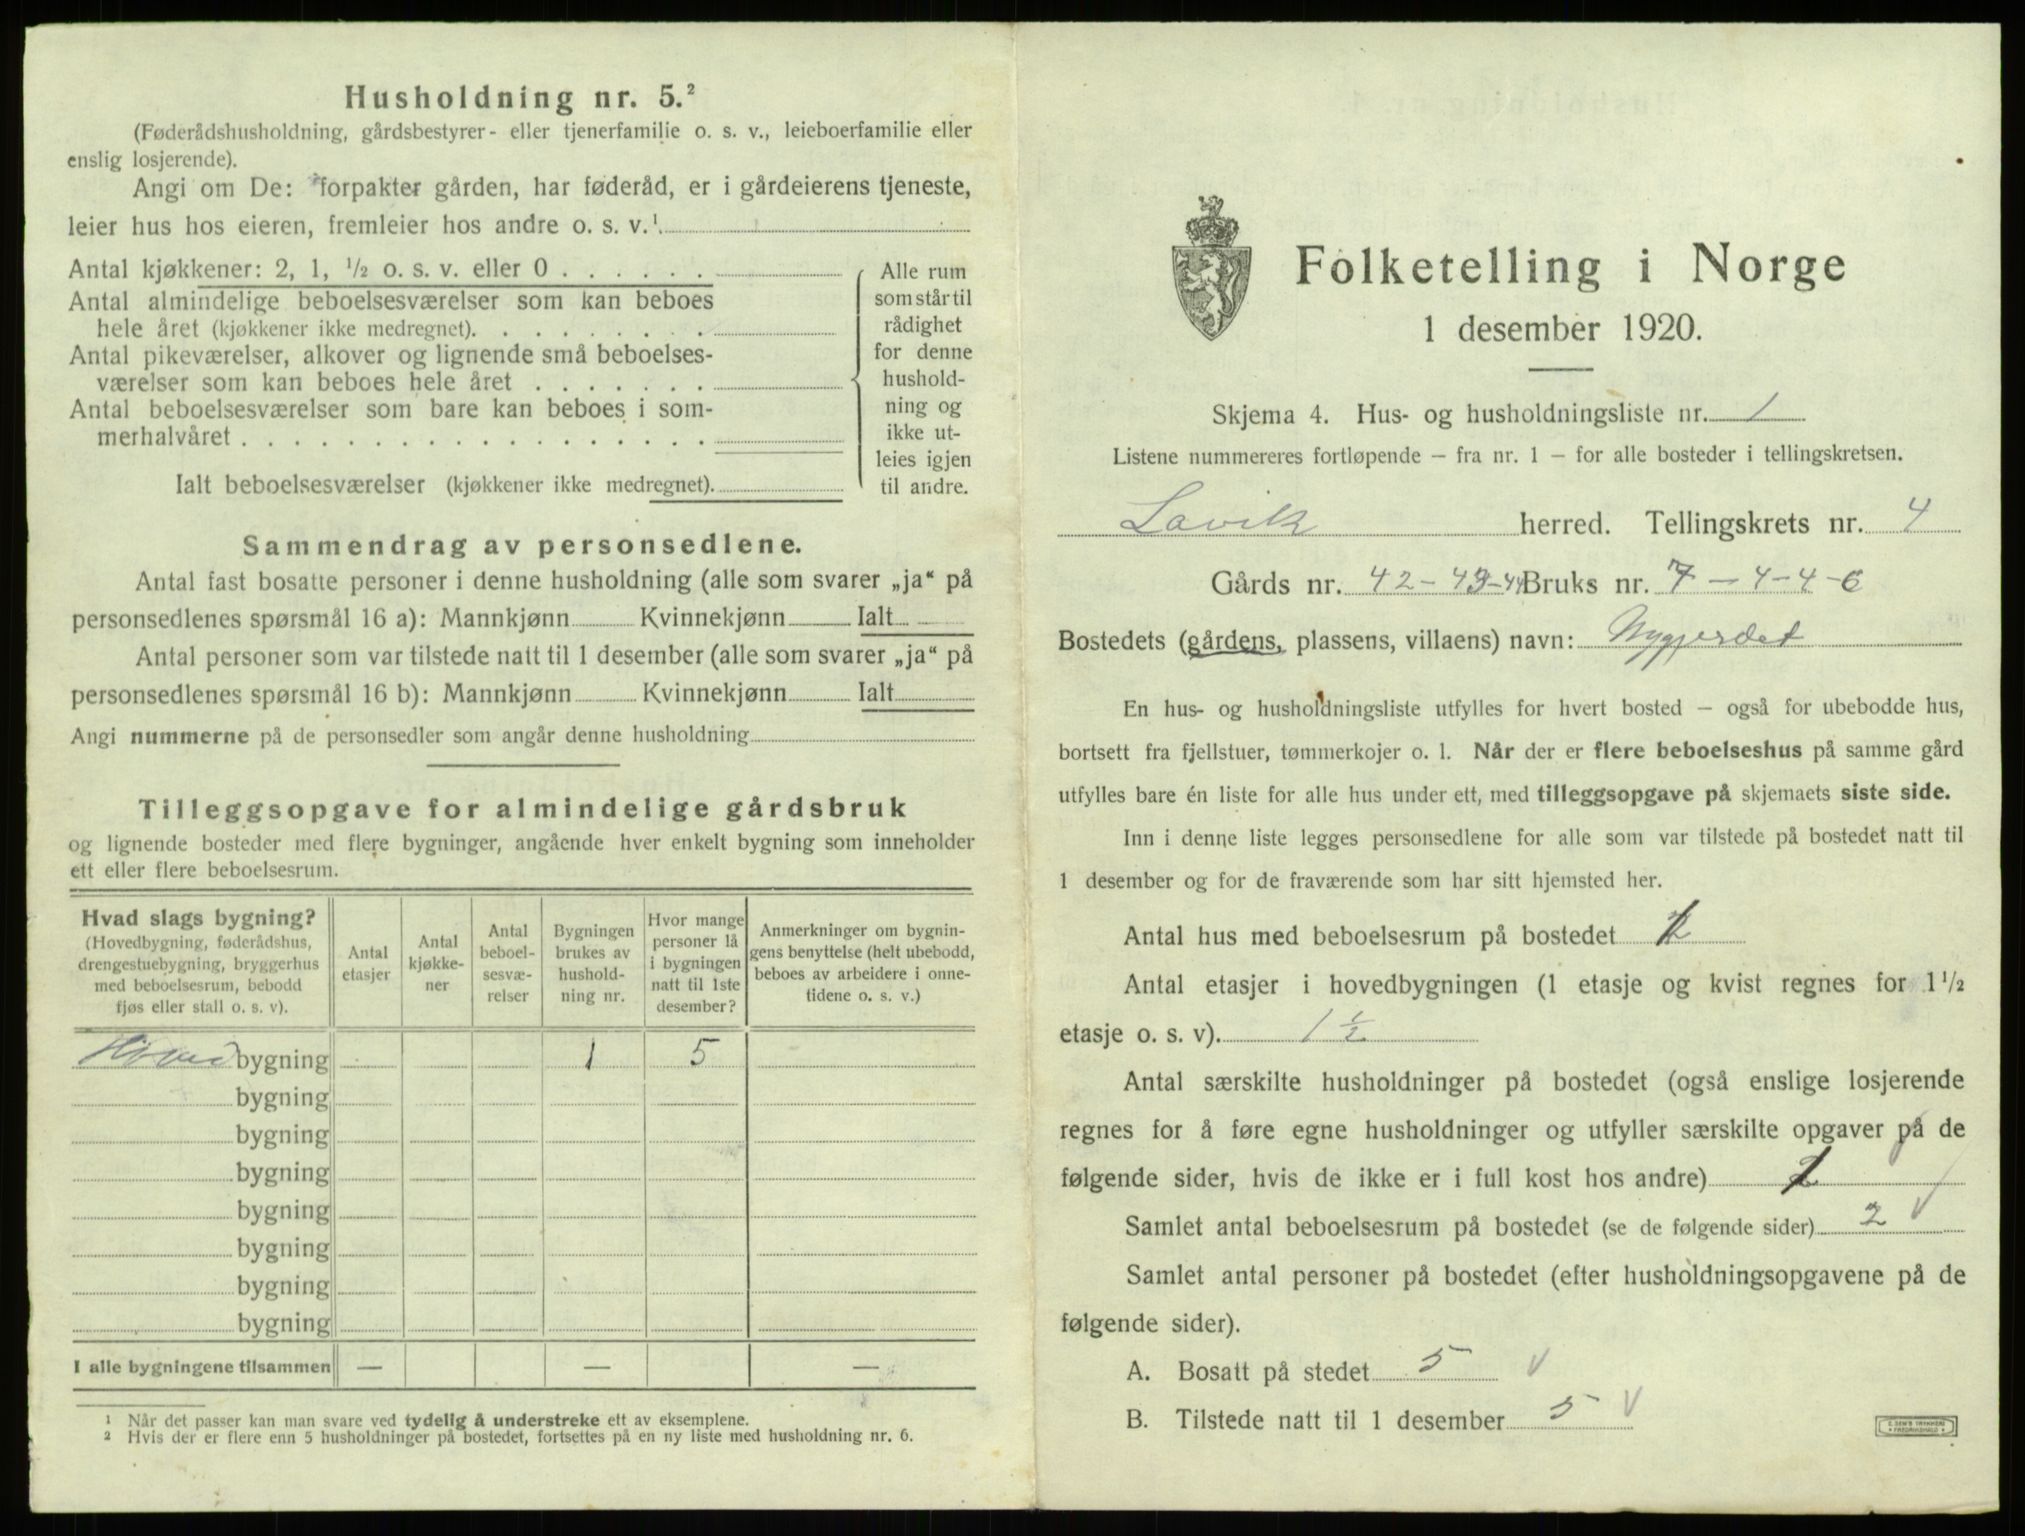 Husholdning nr. 5.²
(Føderådshusholdning, gårdsbestyrer- eller tjenerfamilie o. s. v., leieboerfamilie eller
enslig losjerende).
Angi om De: forpakter gården, har føderåd, er i gårdeierens tjeneste,
leier hus hos eieren, fremleier hos andre o. s. v.¹
Antal kjøkkener: 2, 1, ½ o. s. v. eller 0 . . . . . .
Antal almindelige beboelsesværelser som kan beboes
hele året (kjøkkener ikke medregnet). . . . . . . . .
Antal pikeværelser, alkover og lignende små beboelses-
værelser som kan beboes hele året . . . . . . .
Antal beboelsesværelser som bare kan beboes i som-
merhalvåret . . . . . . . . . . . . . . . . . .
Ialt beboelsesværelser (kjøkkener ikke medregnet).
Alle rum
som står til
rådighet
for denne
hushold-
ning og
ikke ut-
leies igjen
til andre.
Sammendrag av personsedlene.
Antal fast bosatte personer i denne husholdning (alle som svarer „ja“ på
personsedlenes spørsmål 16 a): Mannkjønn Kvinnekjønn Ialt
Antal personer som var tilstede natt til 1 desember (alle som svarer „ja“ på
personsedlenes spørsmål 16 b): Mannkjønn Kvinnekjønn Ialt
Angi nummerne på de personsedler som angår denne husholdning
Tilleggsopgave for almindelige gårdsbruk
og lignende bosteder med flere bygninger, angående hver enkelt bygning som inneholder
ett eller flere beboelsesrum.
Hvad slags bygning?
(Hovedbygning, føderådshus,
drengestuebygning, bryggerhus
med beboelsesrum, bebodd
fjøs eller stall o. s. v).
Antal
etasjer
Antal
kjøkke-
ner
Antal
beboel-
sesvæ-
relser
Bygningen
brukes av
hushold-
ning nr.
Hvor mange
personer lå
i bygningen
natt til 1ste
desember?
Anmerkninger om bygnin-
gens benyttelse (helt ubebodd,
beboes av arbeidere i onne-
tidene o. s. v.)
Hovedbygning 1 5
bygning
bygning
bygning
bygning
bygning
bygning
bygning
I alle bygningene tilsammen — — —
¹ Når det passer kan man svare ved tydelig å understreke ett av eksemplene.
² Hvis der er flere enn 5 husholdninger på bostedet, fortsettes på en ny liste med husholdning nr. 6.
Folketelling i Norge
1 desember 1920.
Skjema 4. Hus- og husholdningsliste nr. 1
Listene nummereres fortløpende – fra nr. 1 – for alle bosteder i tellingskretsen.
Lavik herred. Tellingskrets nr. 4
Gårds nr. 42-43-44 Bruks nr. 7-4-4-6
Bostedets (gårdens, plassens, villaens) navn: Nygjerdet
En hus- og husholdningsliste utfylles for hvert bosted – også for ubebodde hus,
bortsett fra fjellstuer, tømmerkojer o. l. Når der er flere beboelseshus på samme gård
utfylles bare én liste for alle hus under ett, med tilleggsopgave på skjemaets siste side.
Inn i denne liste legges personsedlene for alle som var tilstede på bostedet natt til
1 desember og for de fraværende som har sitt hjemsted her.
Antal hus med beboelsesrum på bostedet
Antal etasjer i hovedbygningen (1 etasje og kvist regnes for 1½
etasje o. s. v). 1½
Antal særskilte husholdninger på bostedet (også enslige losjerende
regnes for å føre egne husholdninger og utfyller særskilte opgaver på de
følgende sider, hvis de ikke er i full kost hos andre)
Samlet antal beboelsesrum på bostedet (se de følgende sider) 2 √
Samlet antal personer på bostedet (efter husholdningsopgavene på de
følgende sider).
A. Bosatt på stedet 5 √
B. Tilstede natt til 1 desember 5 √